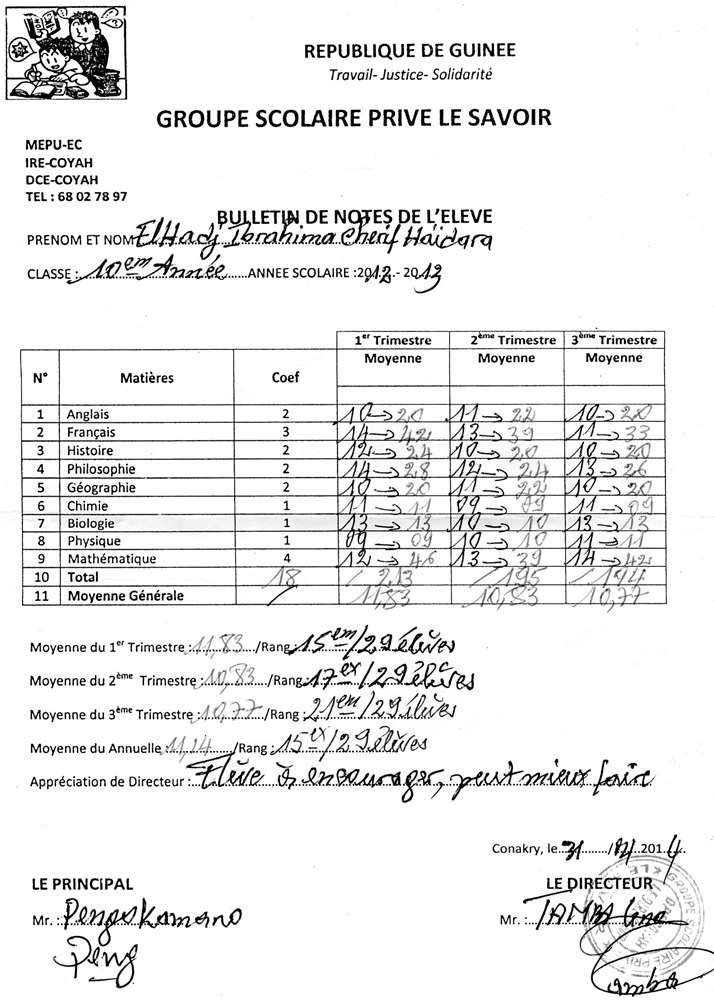 REPUBLIQUE DE GUINEE
Travail- Justice- Solidarité
GROUPE SCOLAIRE PRIVE LE SAVOIR
MEPU-EC
IRE-COYAH
DCE-COYAH
TEL : 68 02 78 97
BULLETIN DE NOTES DE L'ELEVE
PRENOM ET NOM ElHadj Ibrahima Cherif Haïdara
CLASSE : 10em Année ANNEE SCOLAIRE :2012 - 2013
1er Trimestre 2ème Trimestre 3ème Trimestre
N° Matières Coef Moyenne Moyenne Moyenne
1 Anglais 2 10→20 11→22 10→20
2 Français 3 14→42 13→39 11→33
3 Histoire 2 12→24 10→20 10→20
4 Philosophie 2 14→28 12→24 13→26
5 Géographie 2 10→20 11→22 10→20
6 Chimie 1 11→11 09→09 11→09
7 Biologie 1 13→13 10→10 13→13
8 Physique 1 09→09 10→10 11→11
9 Mathématique 4 12→46 13→39 14→42
10 Total 18 213 195 194
11 Moyenne Générale 11,83 10,83 10,77
Moyenne du 1er Trimestre : 11,83 /Rang : 15em/29 élèves
Moyenne du 2ème Trimestre : 10,83 /Rang : 17ex/29 élèves
Moyenne du 3ème Trimestre : 10,77 /Rang : 21em/29 élèves
Moyenne du Annuelle : 11,14 /Rang : 15ex/29 élèves
Appréciation de Directeur : Elève à encourager, peut mieux faire
Conakry, le 31 / 2014
LE PRINCIPAL LE DIRECTEUR
Mr. : Mr. : TAMBA
GROUPE SCOLAIRE PRIVE